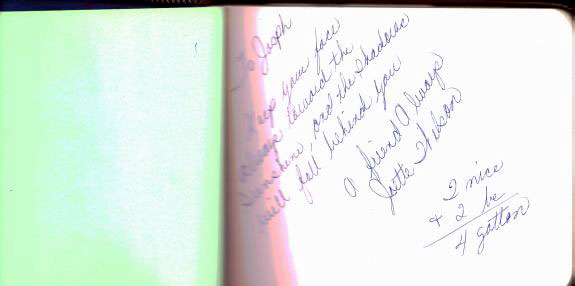 To Joseph
Keep your face
always toward the
Sunshine, and the shadows
will fall behind you
a friend Always
Wilson
2 nice
+ 2 be
4 gotton